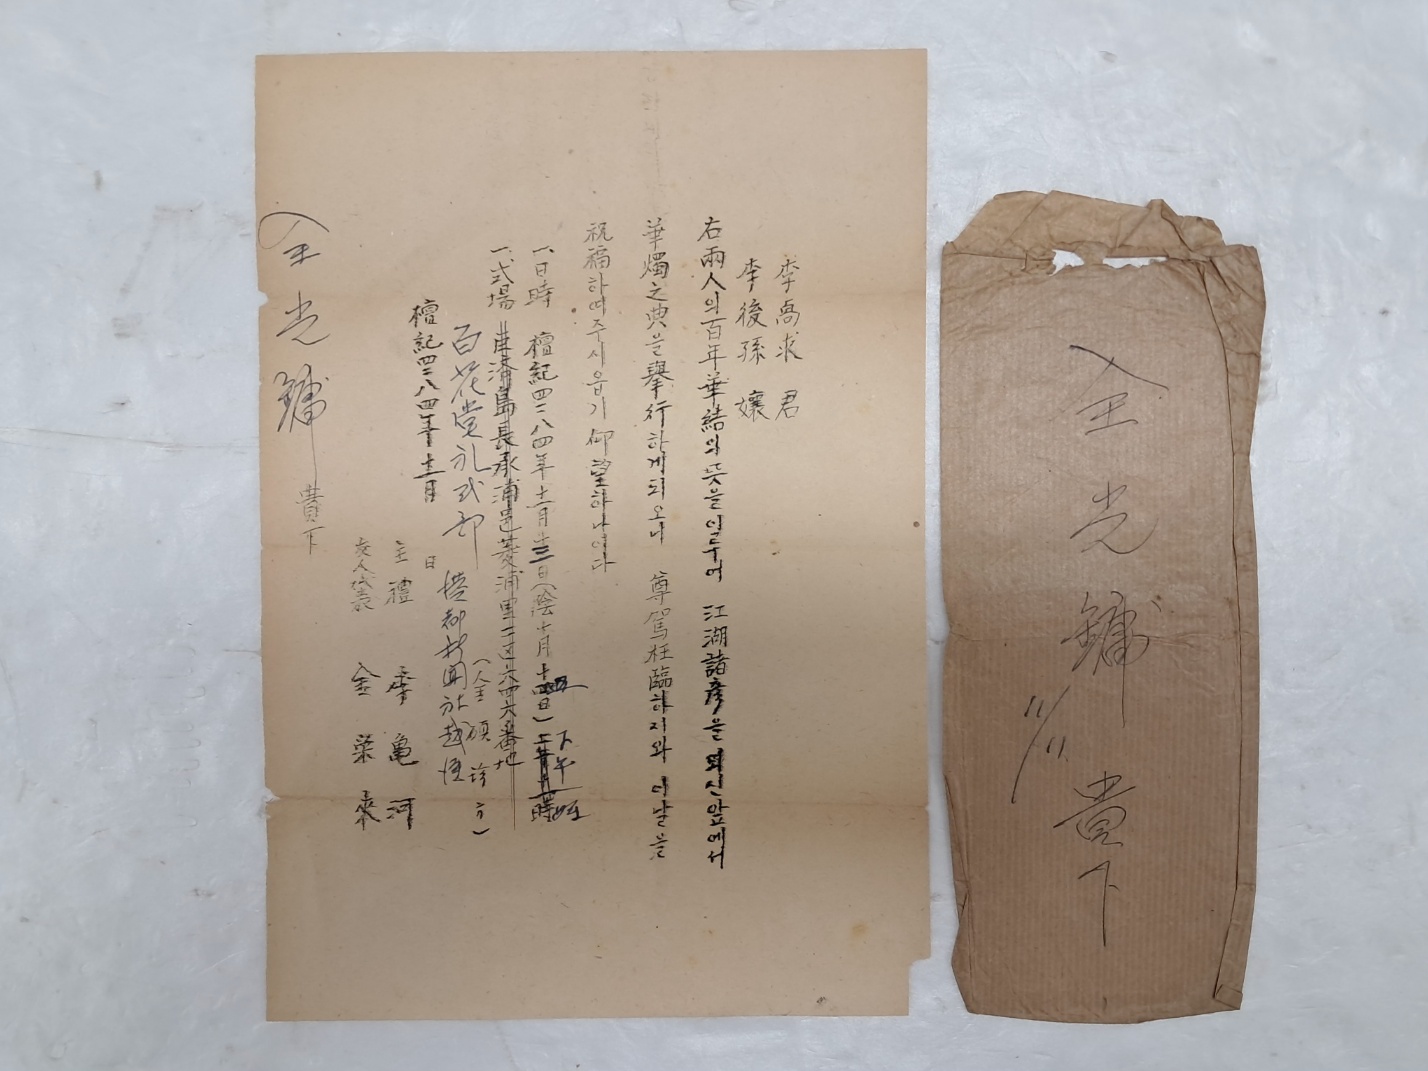 李喬求 君
李後孫 孃
右兩人의百年華結의뜻을이루어 江湖諸彦을뫼신앞에서
華燭之典을擧行하게되오니 尊駕枉臨하지와 이날을
祝福하여주시옵기仰望하나이다
一、日時 檀紀四二八四年十二月十三日(陰十一月十五日) 下午一時
一、式場 巨濟島長承浦邑菱浦里二區六四六番地
(金碩珍方)
百花堂礼式部 港都新聞社越便
檀記四二八四年十二月 日
主禮 李龜河
友人代表 金榮來
全光鏞 貴下
全光鏞 貴下